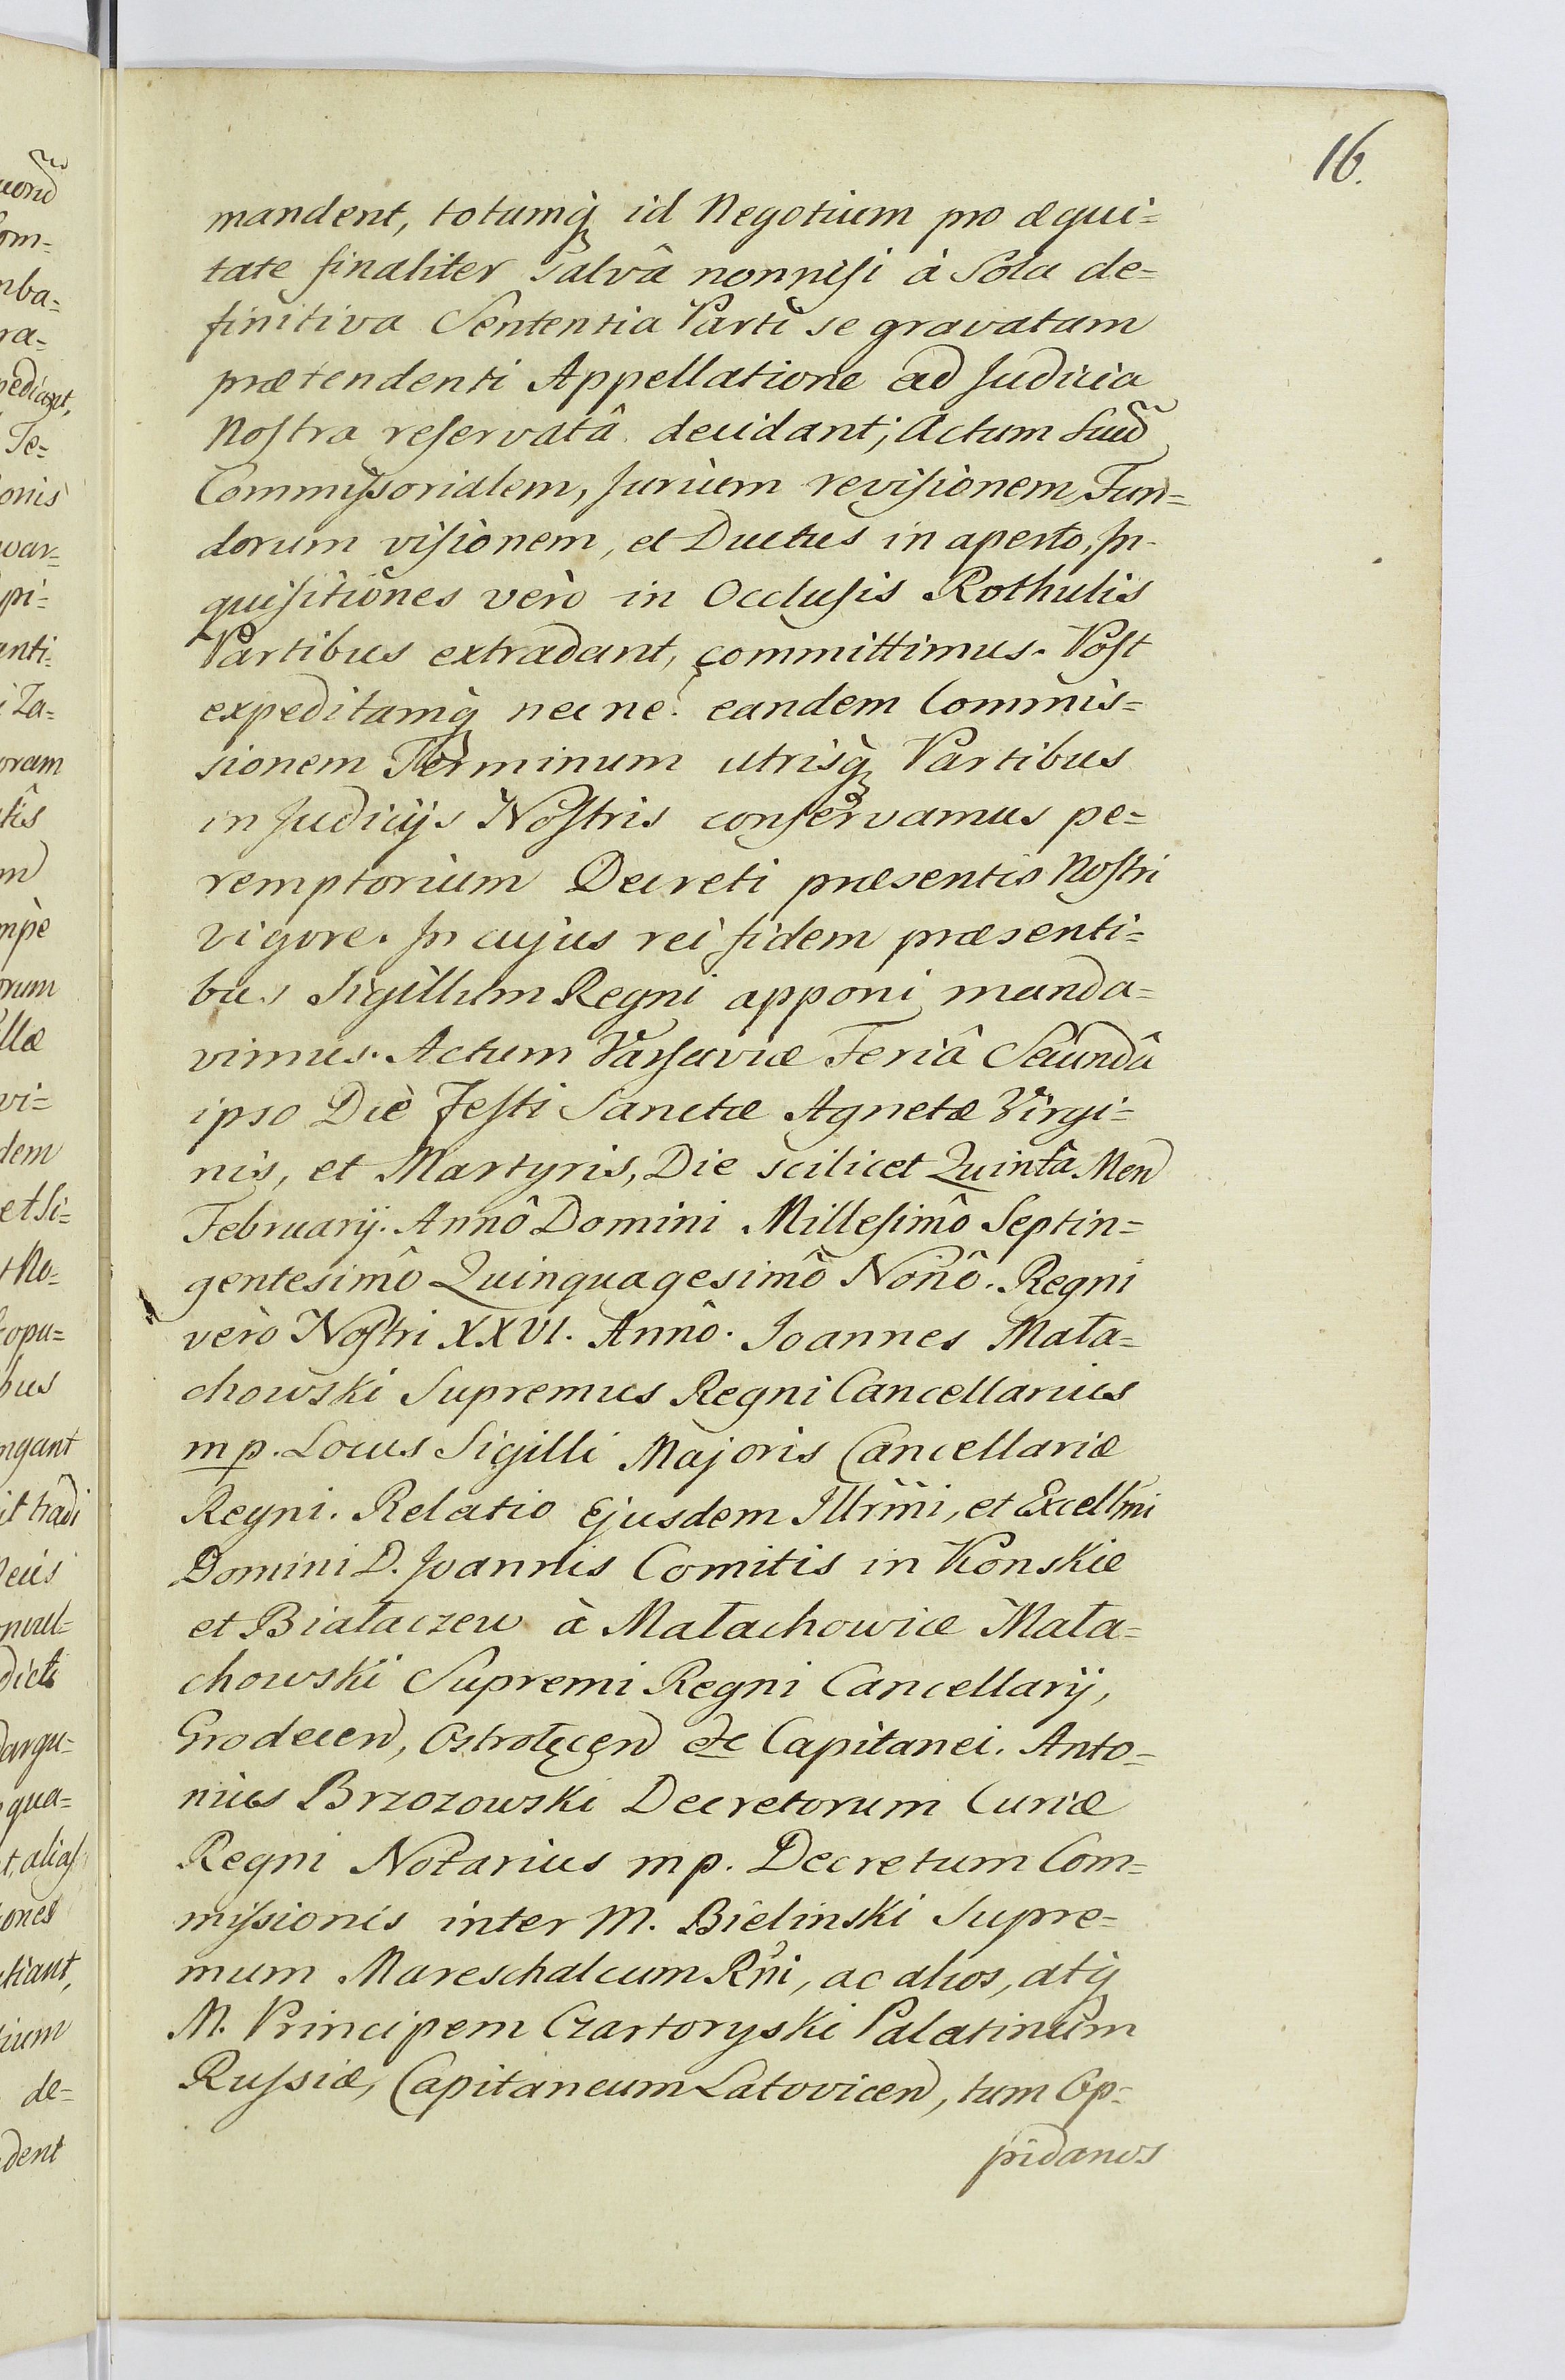 16.
mandent, totumq́ id Negotium pro æqui=
tate finaliter salvâ nonnisi à Sola de=
finitiva Sententia Parti se gravatam
prætendenti Appellatione ad Judicia
Nostra reservatâ decidant; Actum suũ
Commissorialem, Jurium revisionem, Fun=
dorum visionem, et Ductus in aperto, In-
quisitiones verò in Occlusis Rothulis
Partibus extradant, committimus. Post
expeditamq́ nec ne eandem Commis=
sionem Terminum utrisq́ Partibus
in Judicijs Nostris conservamus pe=
remptorium Decreti præsentis Nostri
vigore. In cujus rei fidem præsenti=
bus Sigillum Regni apponi manda=
vimus. Actum Varsaviæ Feriâ Secundâ
ipso Die Festi Sanctæ Agnetæ Virgi=
nis, et Martyris, Die scilicet Quintâ Men
Februarij. Annô Domini Millesimô Septin=
gentesimô Quinquagesimô Nonô. Regni
verò Nostri XXVI. Annô. Joannes Mała=
chowski Supremus Regni Cancellarius
mp. Locus Sigilli Majoris Cancellariæ
Regni. Relatio Ejusdem Illrm̃i, et Excellm̃i
Domini D. Joannis Comitis in Konskie
et Białaczew à Małachowice Mała=
chowski Supremi Regni Cancellarij,
Grodecen, Ostrołęcen etc Capitanei. Anto=
nius Brzozowski Decretorum Curiæ
Regni Notarius mp. Decretum Com=
missionis inter M. Bielinski Supre=
mum Mareschalcum Rñi, ac alios, atq́
M. Principem Czartoryski Palatinum
Russiæ, Capitaneum Latovicen, tum Op=
pidanos